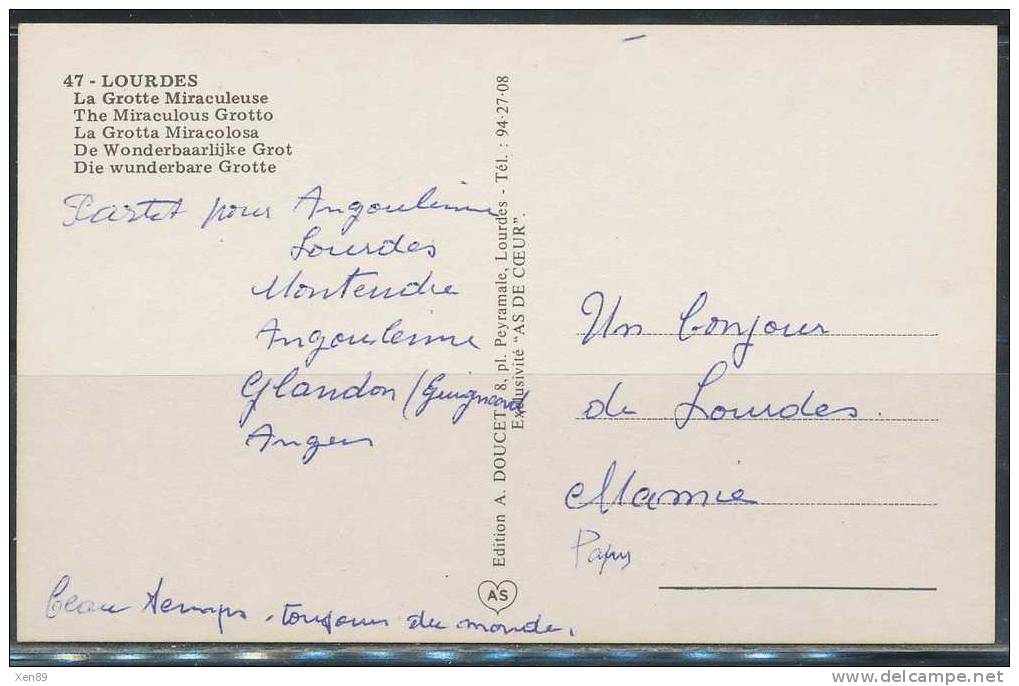 47 - LOURDES
La Grotte Miraculeuse
The Miraculous Grotto
La Grotta Miracolosa
De Wonderbaarlijke Grot
Die wunderbare Grotte
pour Angoulême
Lourdes
Montendre
Angoulême
Glandon (
Angers
Beau temps. toujours du monde.
Edition A. DOUCET, 8, pl. Peyramale, Lourdes - Tél. : 94-27-08
Exclusivité "AS DE CŒUR".
AS
Un bonjour
de Lourdes.
Mamie
Papy
Xen89
www.delcampe.net